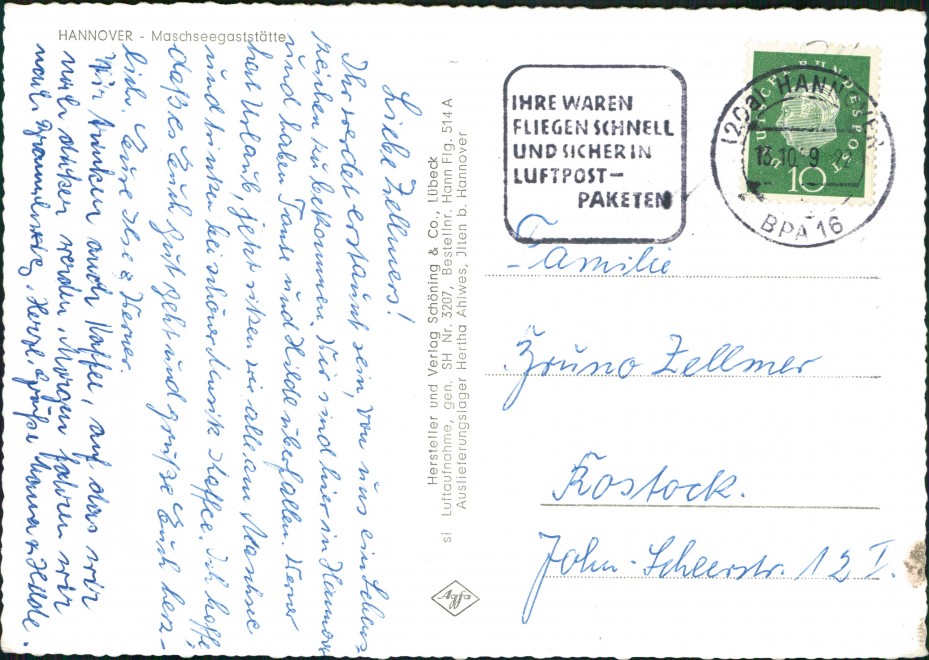 HANNOVER - Maschseegaststätte
Liebe Zellmers!
Ihr werdet erstaunt sein, von uns ein Lebens
zeichen zu bekommen. Wir sind hier in Hannover
und haben Tante und Hilde überfallen. Werner
hat Urlaub, jetzt sitzen wir alle am Maschsee
und trinken bei schöner Musik Kaffee. Ich hoffe,
daß es Euch gut geht und grüße Euch herz-
lich. Eure Ilse & Werner.
Wir trinken auch Kaffee, auf das wir
noch dicker werden. Morgen fahren wir
nach Braunschweig. Herzl. Grüße Mama & Hilde.
Hersteller und Verlag Schöning & Co., Lübeck
si Luftaufnahme, gen. SH Nr. 3207, Bestellnr. Hann Flg. 514 A
Auslieferungslager Hertha Ahlwes, Ilten b. Hannover
Agfa
IHRE WAREN
FLIEGEN SCHNELL
UND SICHER IN
LUFTPOST-
PAKETEN
(20a) HANNOVER
13.10.
BPA 16
DEUTSCHE BUNDESPOST
10
Familie
Bruno Zellmer
Rostock.
John-Scheerstr. 12 I.